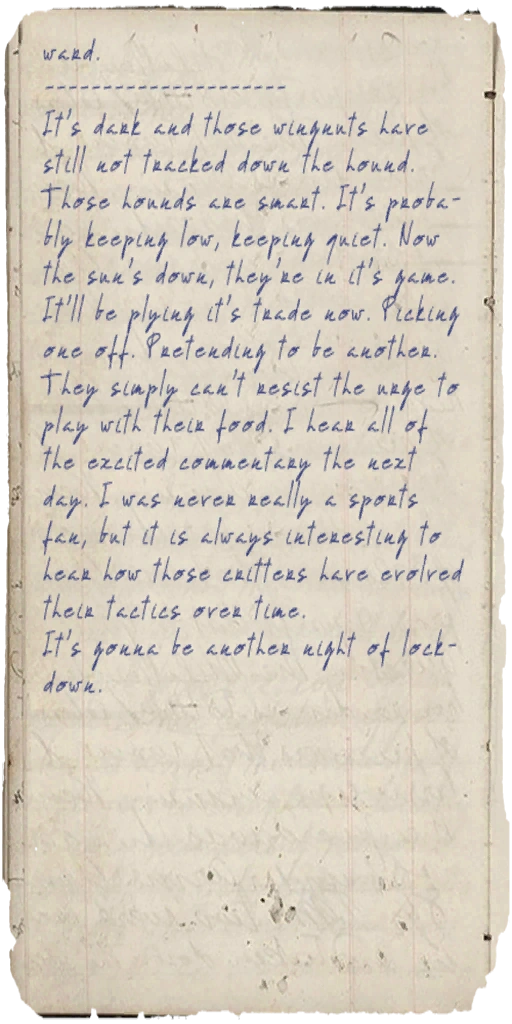 ward.
---------------------
It's dark and those wingnuts have
still not tracked down the hound.
Those hounds are smart. It's proba-
bly keeping low, keeping quiet. Now
the sun's down, they're in it's game.
It'll be plying it's trade now. Picking
one off. Pretending to be another.
They simply can't resist the urge to
play with their food. I hear all of
the excited commentary the next
day. I was never really a sports
fan, but it is always interesting to
hear how those critters have evolved
their tactics over time.
It's gonna be another night of lock-
down.